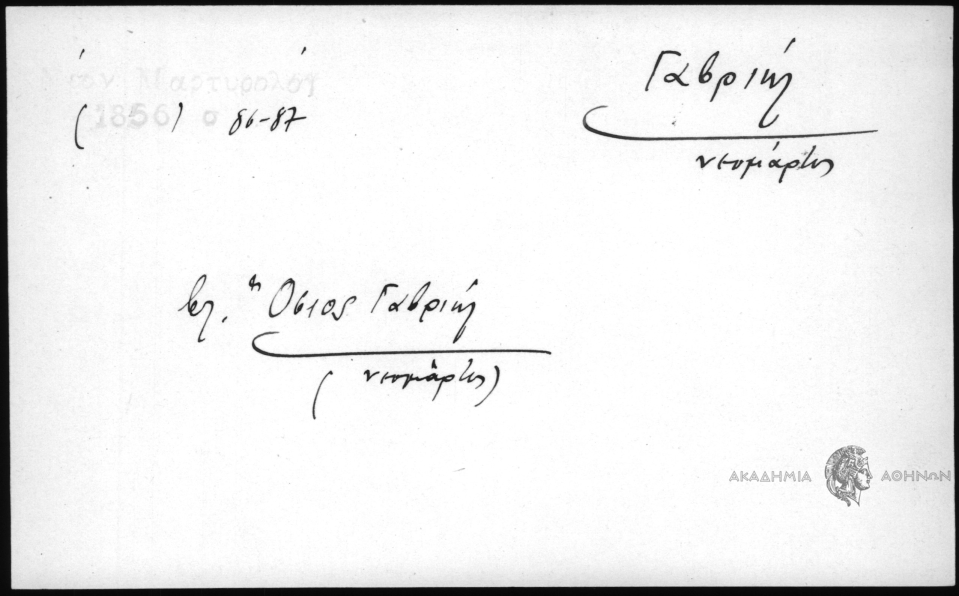 Νέον Μαρτυρολόγ
(1856) σ 86-87
Γαβριήλ
νεομάρτυς
βλ. Όσιος Γαβριήλ
(νεομάρτυς)
ΑΚΑΔΗΜΙΑ ΑΘΗΝΩΝ